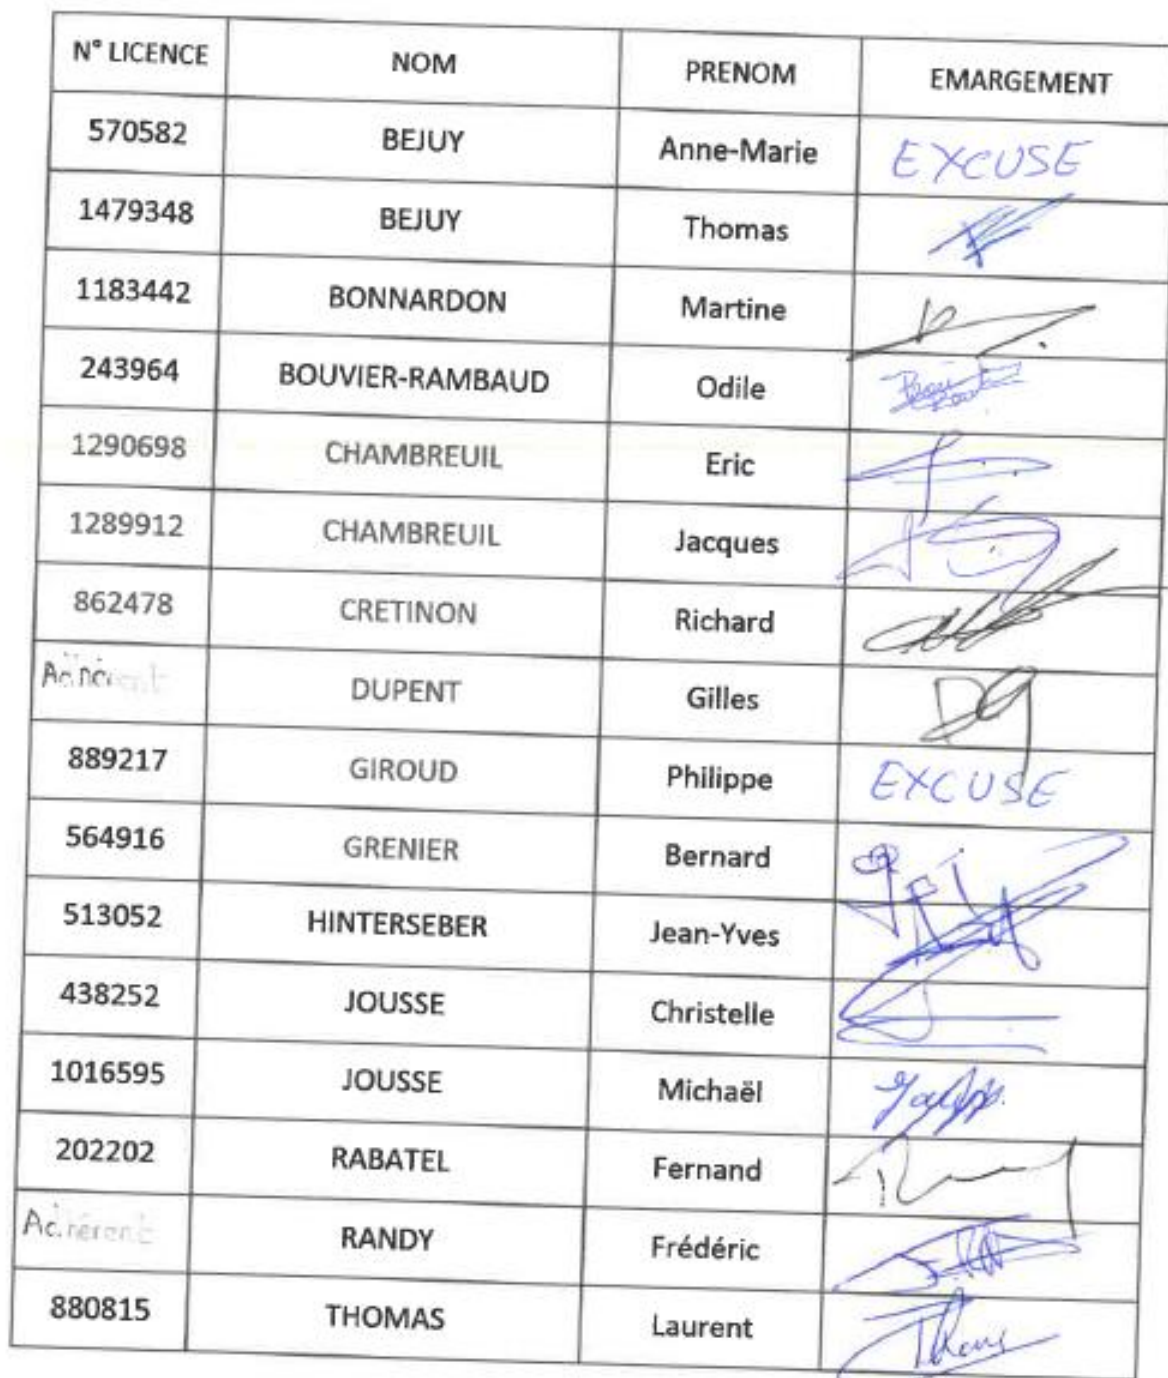 N° LICENCE NOM PRENOM EMARGEMENT
570582 BEJUY Anne-Marie EXCUSE
1479348 BEJUY Thomas
1183442 BONNARDON Martine
243964 BOUVIER-RAMBAUD Odile
1290698 CHAMBREUIL Eric
1289912 CHAMBREUIL Jacques
862478 CRETINON Richard
Adhérent DUPENT Gilles
889217 GIROUD Philippe EXCUSE
564916 GRENIER Bernard
513052 HINTERSEBER Jean-Yves
438252 JOUSSE Christelle
1016595 JOUSSE Michaël
202202 RABATEL Fernand
Adhérent RANDY Frédéric
880815 THOMAS Laurent